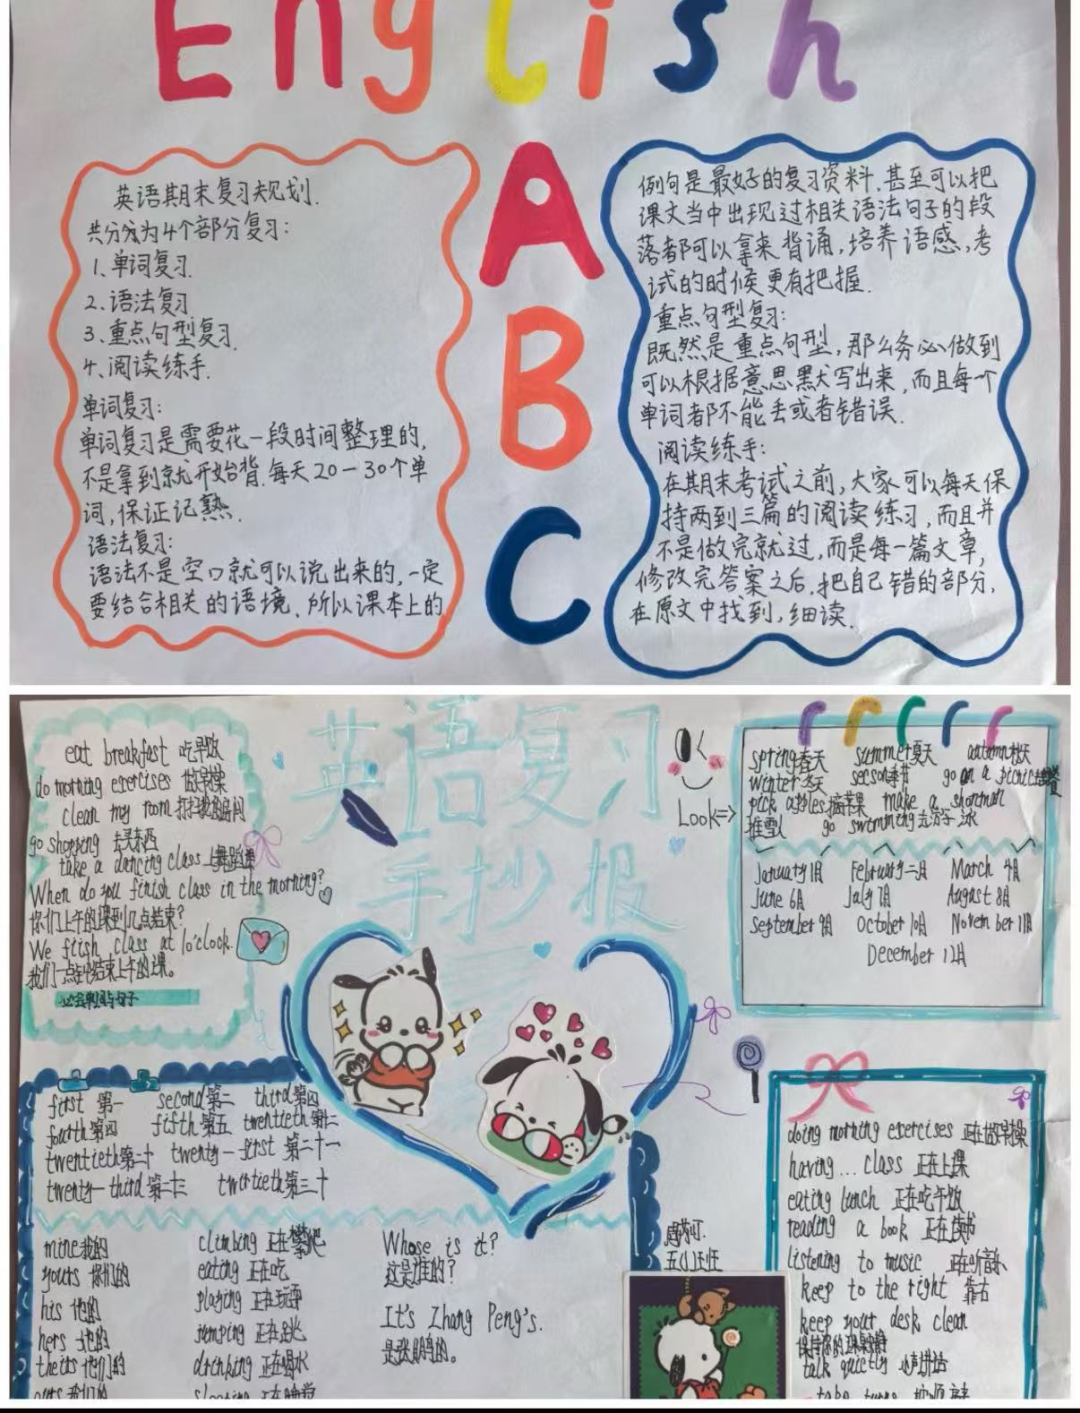 English
英语期末复习规划.
共分为4个部分复习:
1、单词复习.
2、语法复习
3、重点句型复习.
4、阅读练手.
单词复习:
单词复习是需要花一段时间整理的,
不是拿到就开始背.每天20-30个单
词,保证记熟.
语法复习:
语法不是空口就可以说出来的,一定
要结合相关的语境、所以课本上的
A
B
C
例句是最好的复习资料.甚至可以把
课文当中出现过相关语法句子的段
落都可以拿来背诵,培养语感,考
试的时候更有把握.
重点句型复习:
既然是重点句型,那么务必做到
可以根据意思默写出来,而且每个
单词都不能丢或者错误.
阅读练手:
在期末考试之前,大家可以每天保
持两到三篇的阅读练习,而且并
不是做完就过,而是每一篇文章,
修改完答案之后,把自己错的部分,
在原文中找到,细读.
英语复习
手抄报
eat breakfast 吃早饭
do morning exercises 做早操
clean my room 打扫我的房间
go shopping 去买东西
take a dancing class 上舞蹈课
When do you finish class in the morning?
你们上午的课到几点结束?
We fiish class at 1o'clock.
我们一点钟结束上午的课。
Look⇒
spring春天 summer夏天 autumn秋天
winter冬天 season季节 go on a picnic
pick apples摘苹果 make a
推雪人 go swimming去游泳
January1月 February二月 March 4月
June 6月 July 7月 August 8月
September 9月 October 10月 November 11月
December 12月
first 第一 second第二 third第四
fourth第四 fifth第五 twentieth
twentieth第二十 twenty-first 第二十一
twenty-third第 twrtieth第三十
mine我的
yours 你们的
his 他的
hers 她的
theirs他们的
climbing 正在攀爬
eating 正在吃
playing 正在玩耍
jumping 正在跳
drinking 正在喝水
Whose is it?
这是谁的?
It's Zhang Peng's.
是张鹏的。
doing morning exercises 正在做早操
having...class 正在上课
eating lunch 正在吃午饭
reading a book 正在读书
listening to music 正在听音乐
keep to the right 靠右
keep your desk clean
talk quietly 小声讲话
take turns